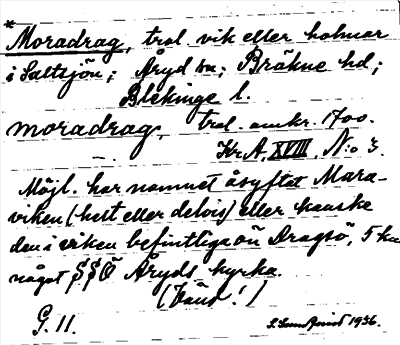 * Moradrag, trol. vik eller holmar
i Saltsjön; Åryd sn; Bräkne hd;
Blekinge l.
moradrag, trol. omkr. 1700.
Kr.A. XVIII. N:o 3.
Möjl. har namnet åsyftat Mara-
viken (helt eller delvis) eller kanske
den i viken befintliga ön Dragsö, 5 km
något SSÖ Åryds kyrka.
(Känd!)
G. 11.
1936.